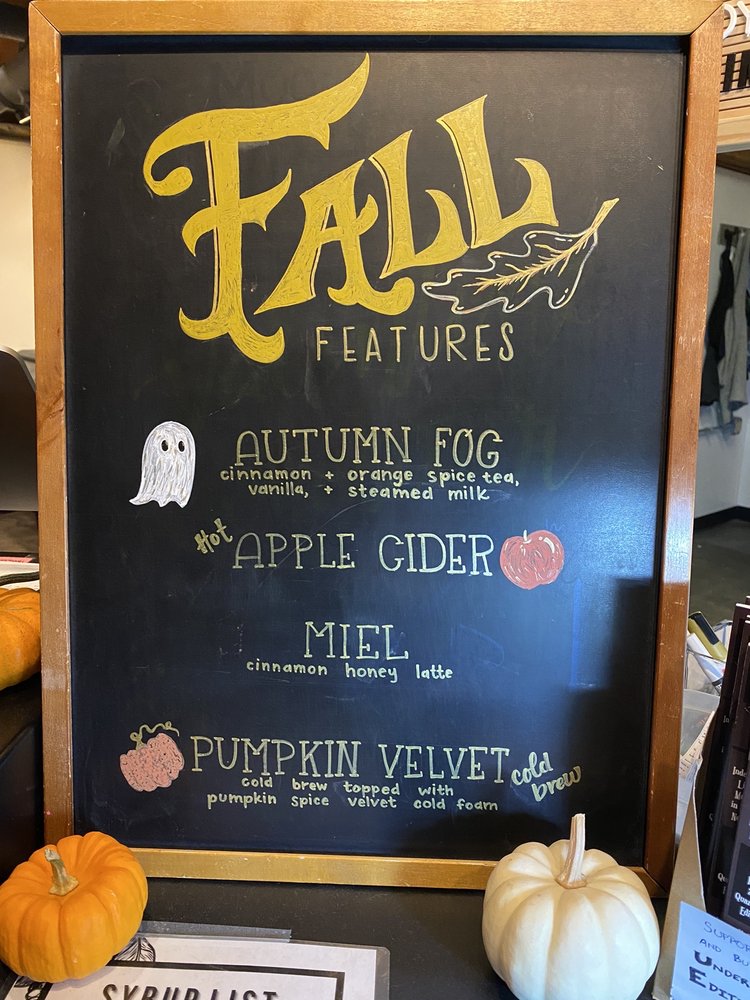 FALL
FEATURES
AUTUMN FOG
cinnamon + orange spice tea,
vanilla, + steamed milk
Hot
APPLE CIDER
MIEL
cinnamon honey latte
PUMPKIN VELVET
cold
brew
cold brew topped with
pumpkin spice velvet cold foam
SYRUP LIST
SUPPOR
AND BU
UNDE
EDI